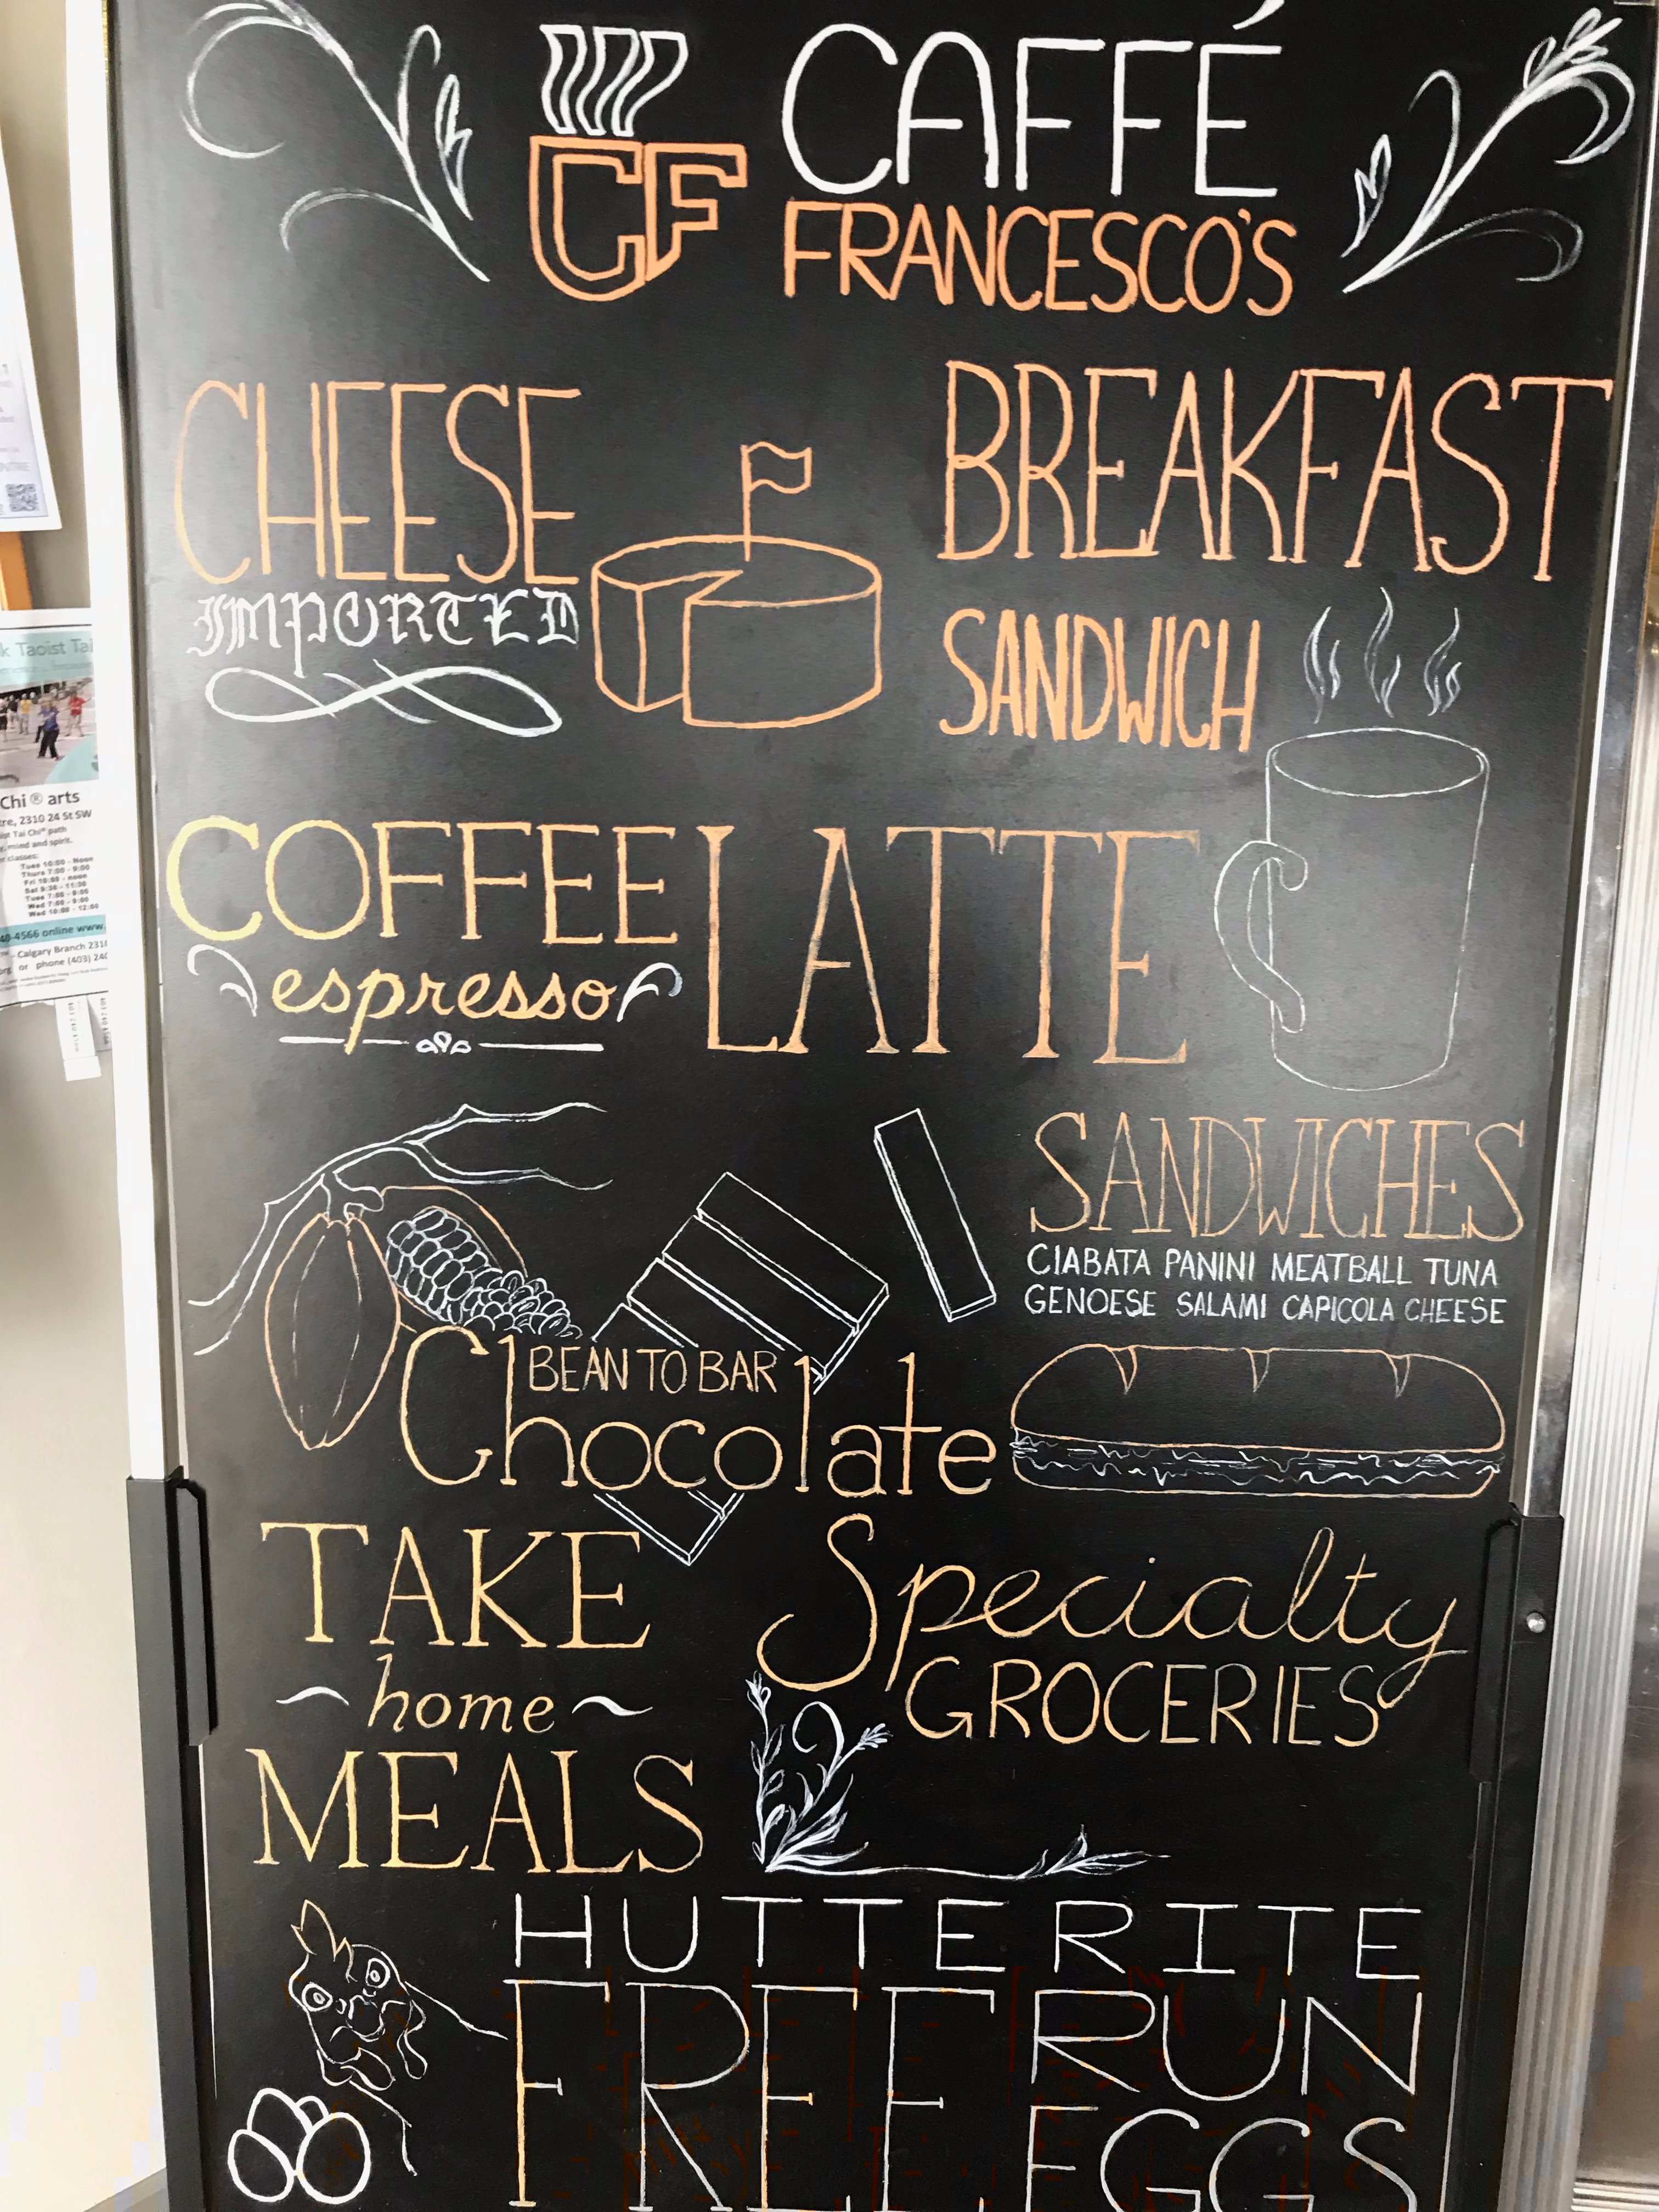 CAFFÉ
CF
FRANCESCO'S
CHEESE
IMPORTED
BREAKFAST
SANDWICH
COFFEE
espresso
LATTE
SANDWICHES
CIABATA PANINI MEATBALL TUNA
GENOESE SALAMI CAPICOLA CHEESE
BEAN TO BAR
Chocolate
TAKE
~home~
MEALS
Specialty
GROCERIES
HUTTERITE
FREE RUN
EGGS
k Taoist Tai
Chi® arts
tre, 2310 24 St SW
ist Tai Chi® path
g, mind and spirit.
r classes:
Tues 10:00 - Noon
Thurs 7:00 - 9:00
Fri 10:00 - noon
Sat 9:30 - 11:30
Tues 7:00 - 9:00
Wed 7:00 - 9:00
Wed 10:00 - 12:00
40-4566 online www.
Calgary Branch 231
org or phone (403) 240